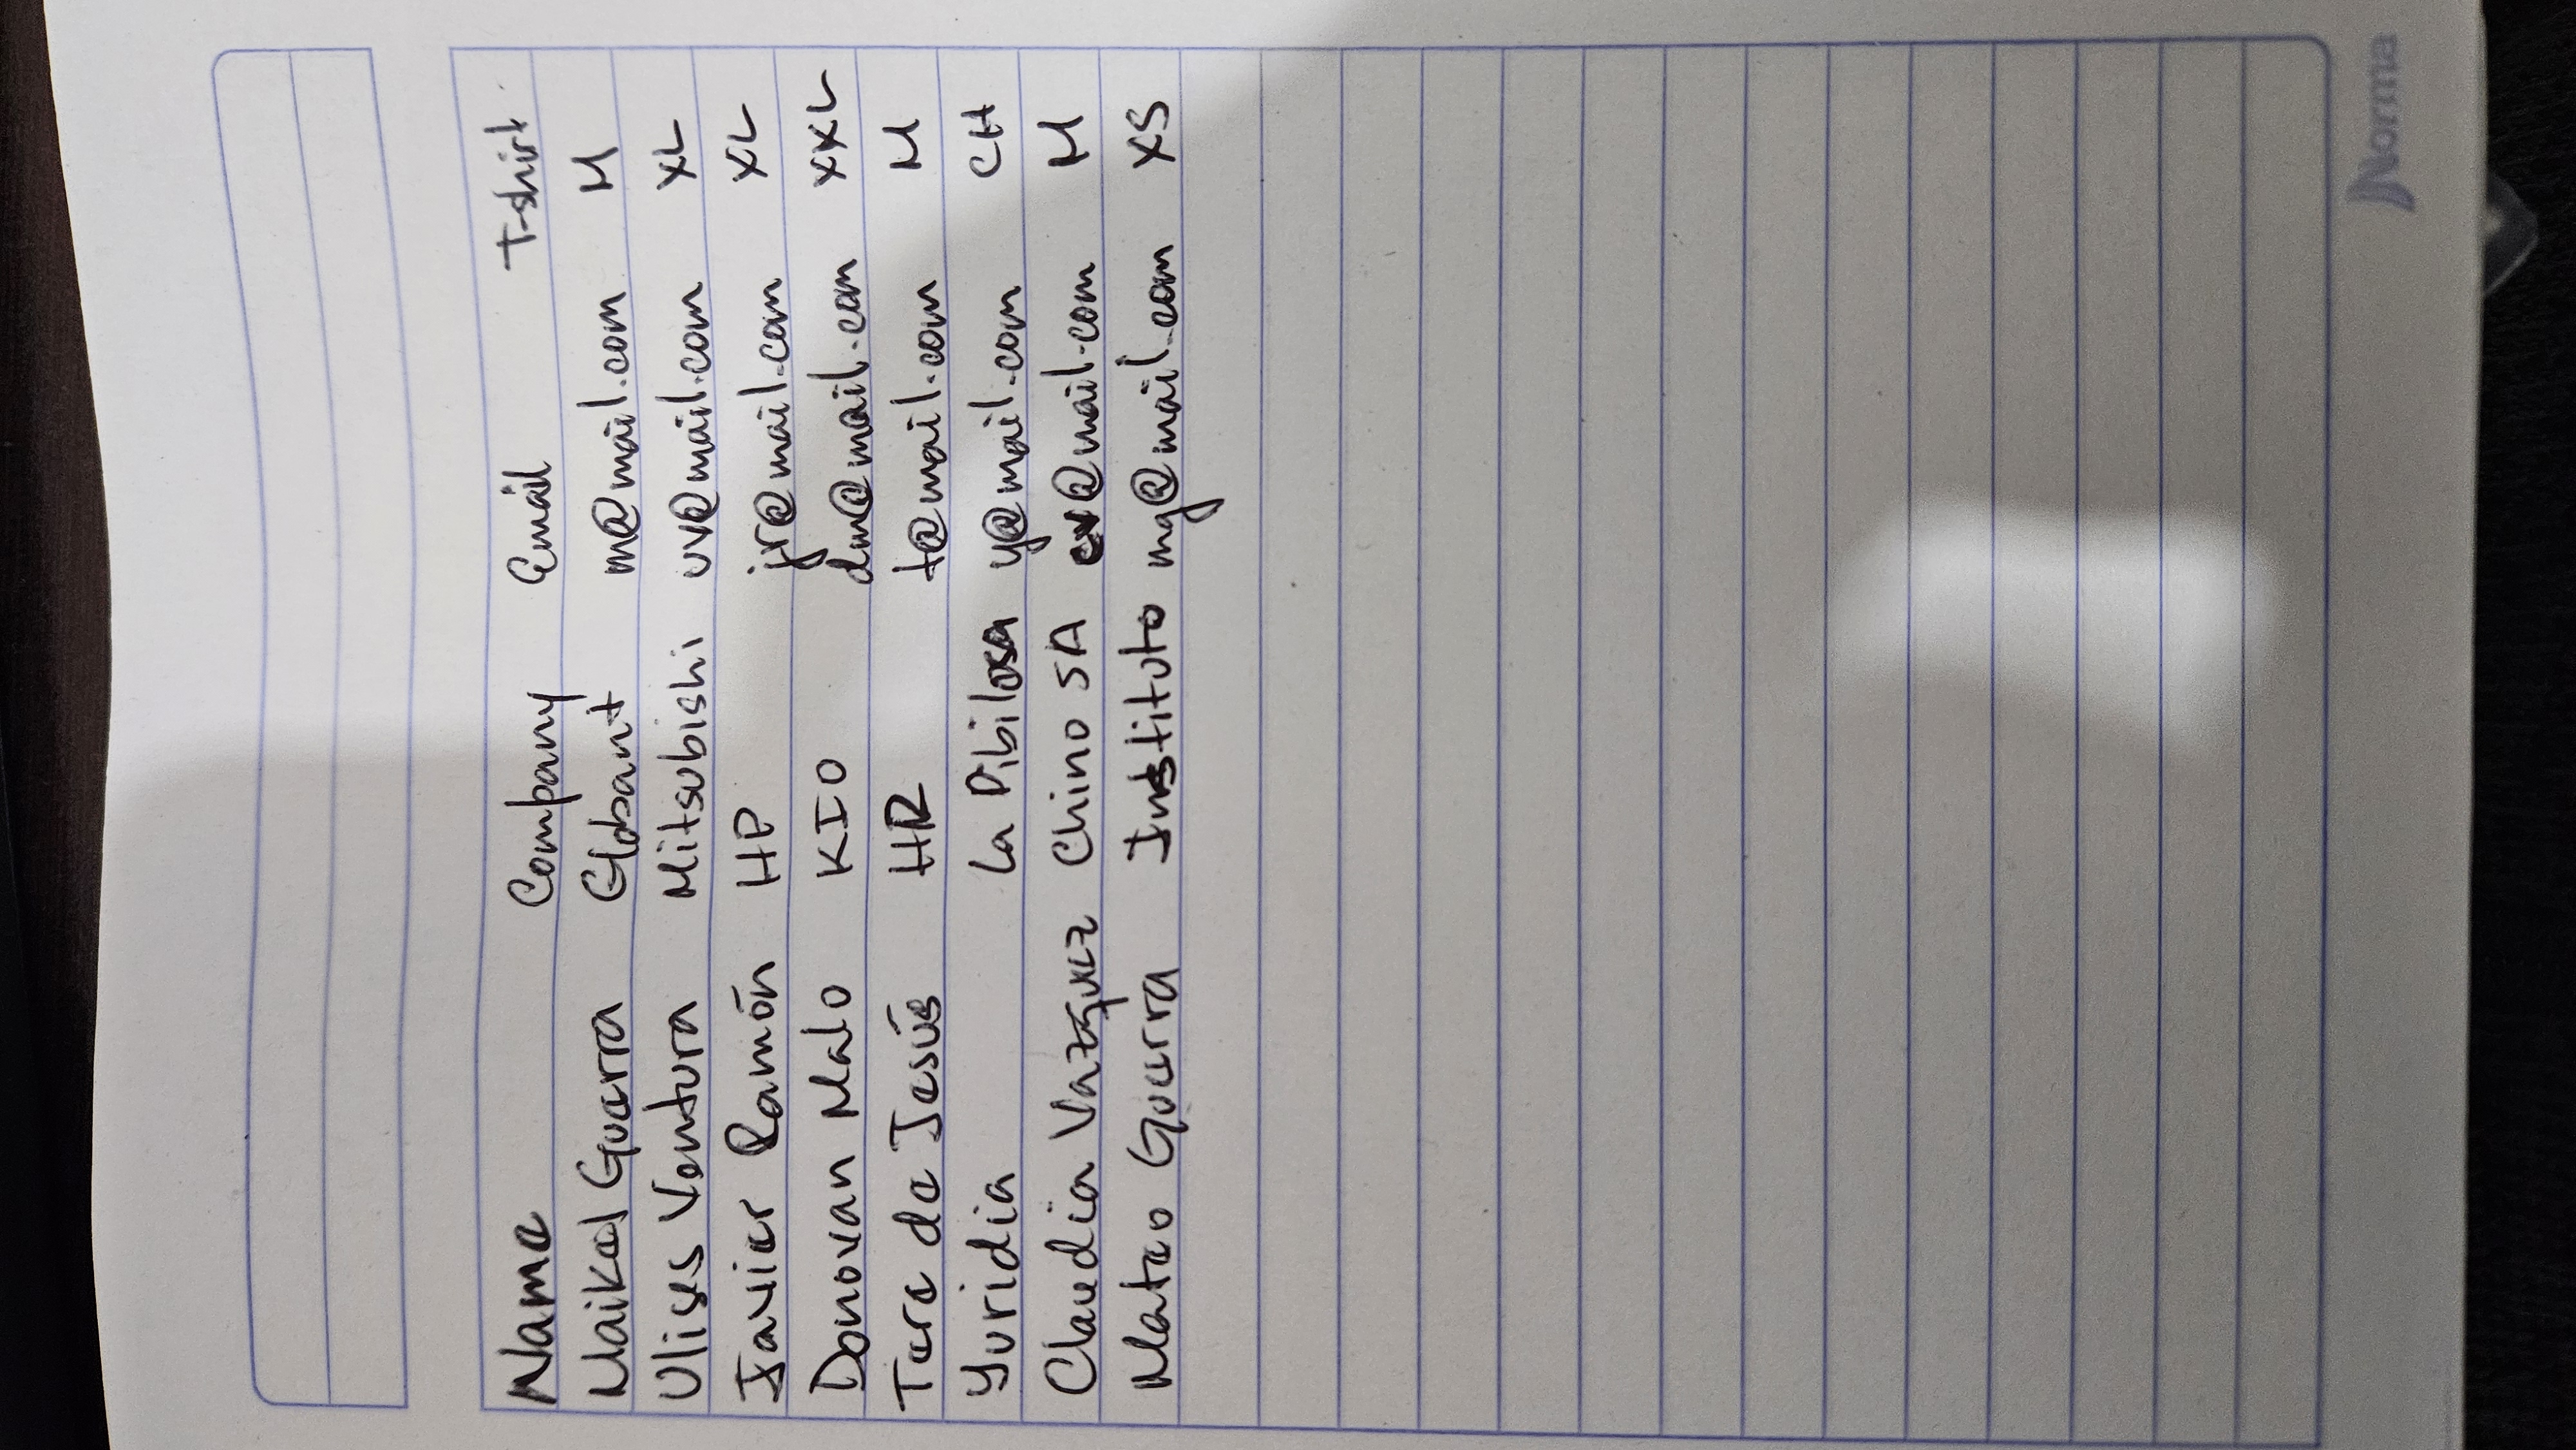 Name Company Email T-shirt
Maikel Guerra Globant m@mail.com M
Ulises Ventura Mitsubishi uv@mail.com XL
Javier Ramón HP jr@mail.com XL
Donovan Malo KIO dm@mail.com XXL
Tere de Jesús HR t@mail.com M
Yuridia La Pibilosa y@mail.com CH
Claudia Vazquez Chino SA cv@mail.com M
Mateo Guerra Instituto mg@mail.com XS
Norma